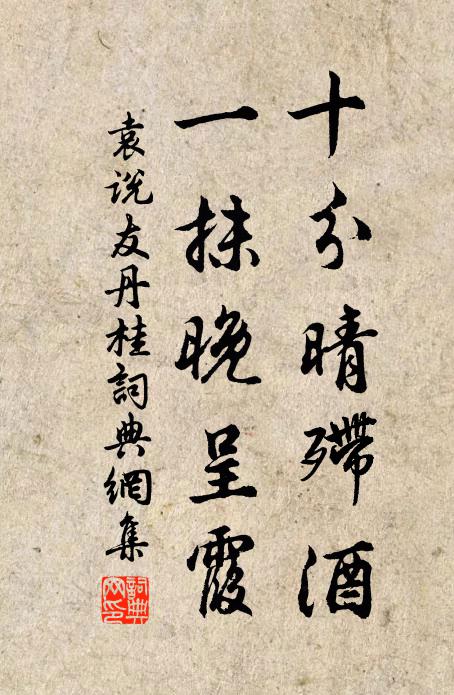 十分晴殢酒
一抹晚呈霞
袁說友丹桂詞典網集
詞典网印